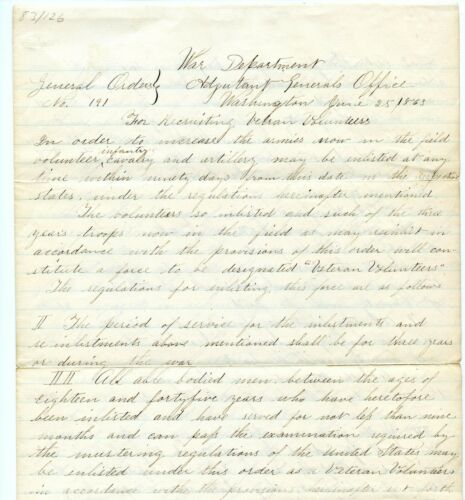 83/126
War Department
General Orders } Adjutant Generals Office
No. 191 Washington June 25 1863
For Recruiting Vetran Volunteers
In order to increase the armies now in the field
volunteer infantry Cavalry and artillery may be enlisted at any
time within ninety days from this date in the
states, under the regulations hereinafter mentioned
The volunteers so enlisted and such of the three
years troops now in the field as may reenlist in
accordance with the provisions of this order will con-
stitute a force to be designated "Veteran Volunteers"
The regulations for enlisting this force are as follows
II The period of service for the enlistments and
re enlistments above mentioned shall be for three years
or during the war
III All able bodied men between the ages of
eighteen and fortyfive years who have heretofore
been enlisted and have served for not less than nine
months and can pass the examination required by
the mustering regulations of the United States may
be enlisted under this order as a Veteran Volunteers
in accordance with the provisions hereinafter set forth